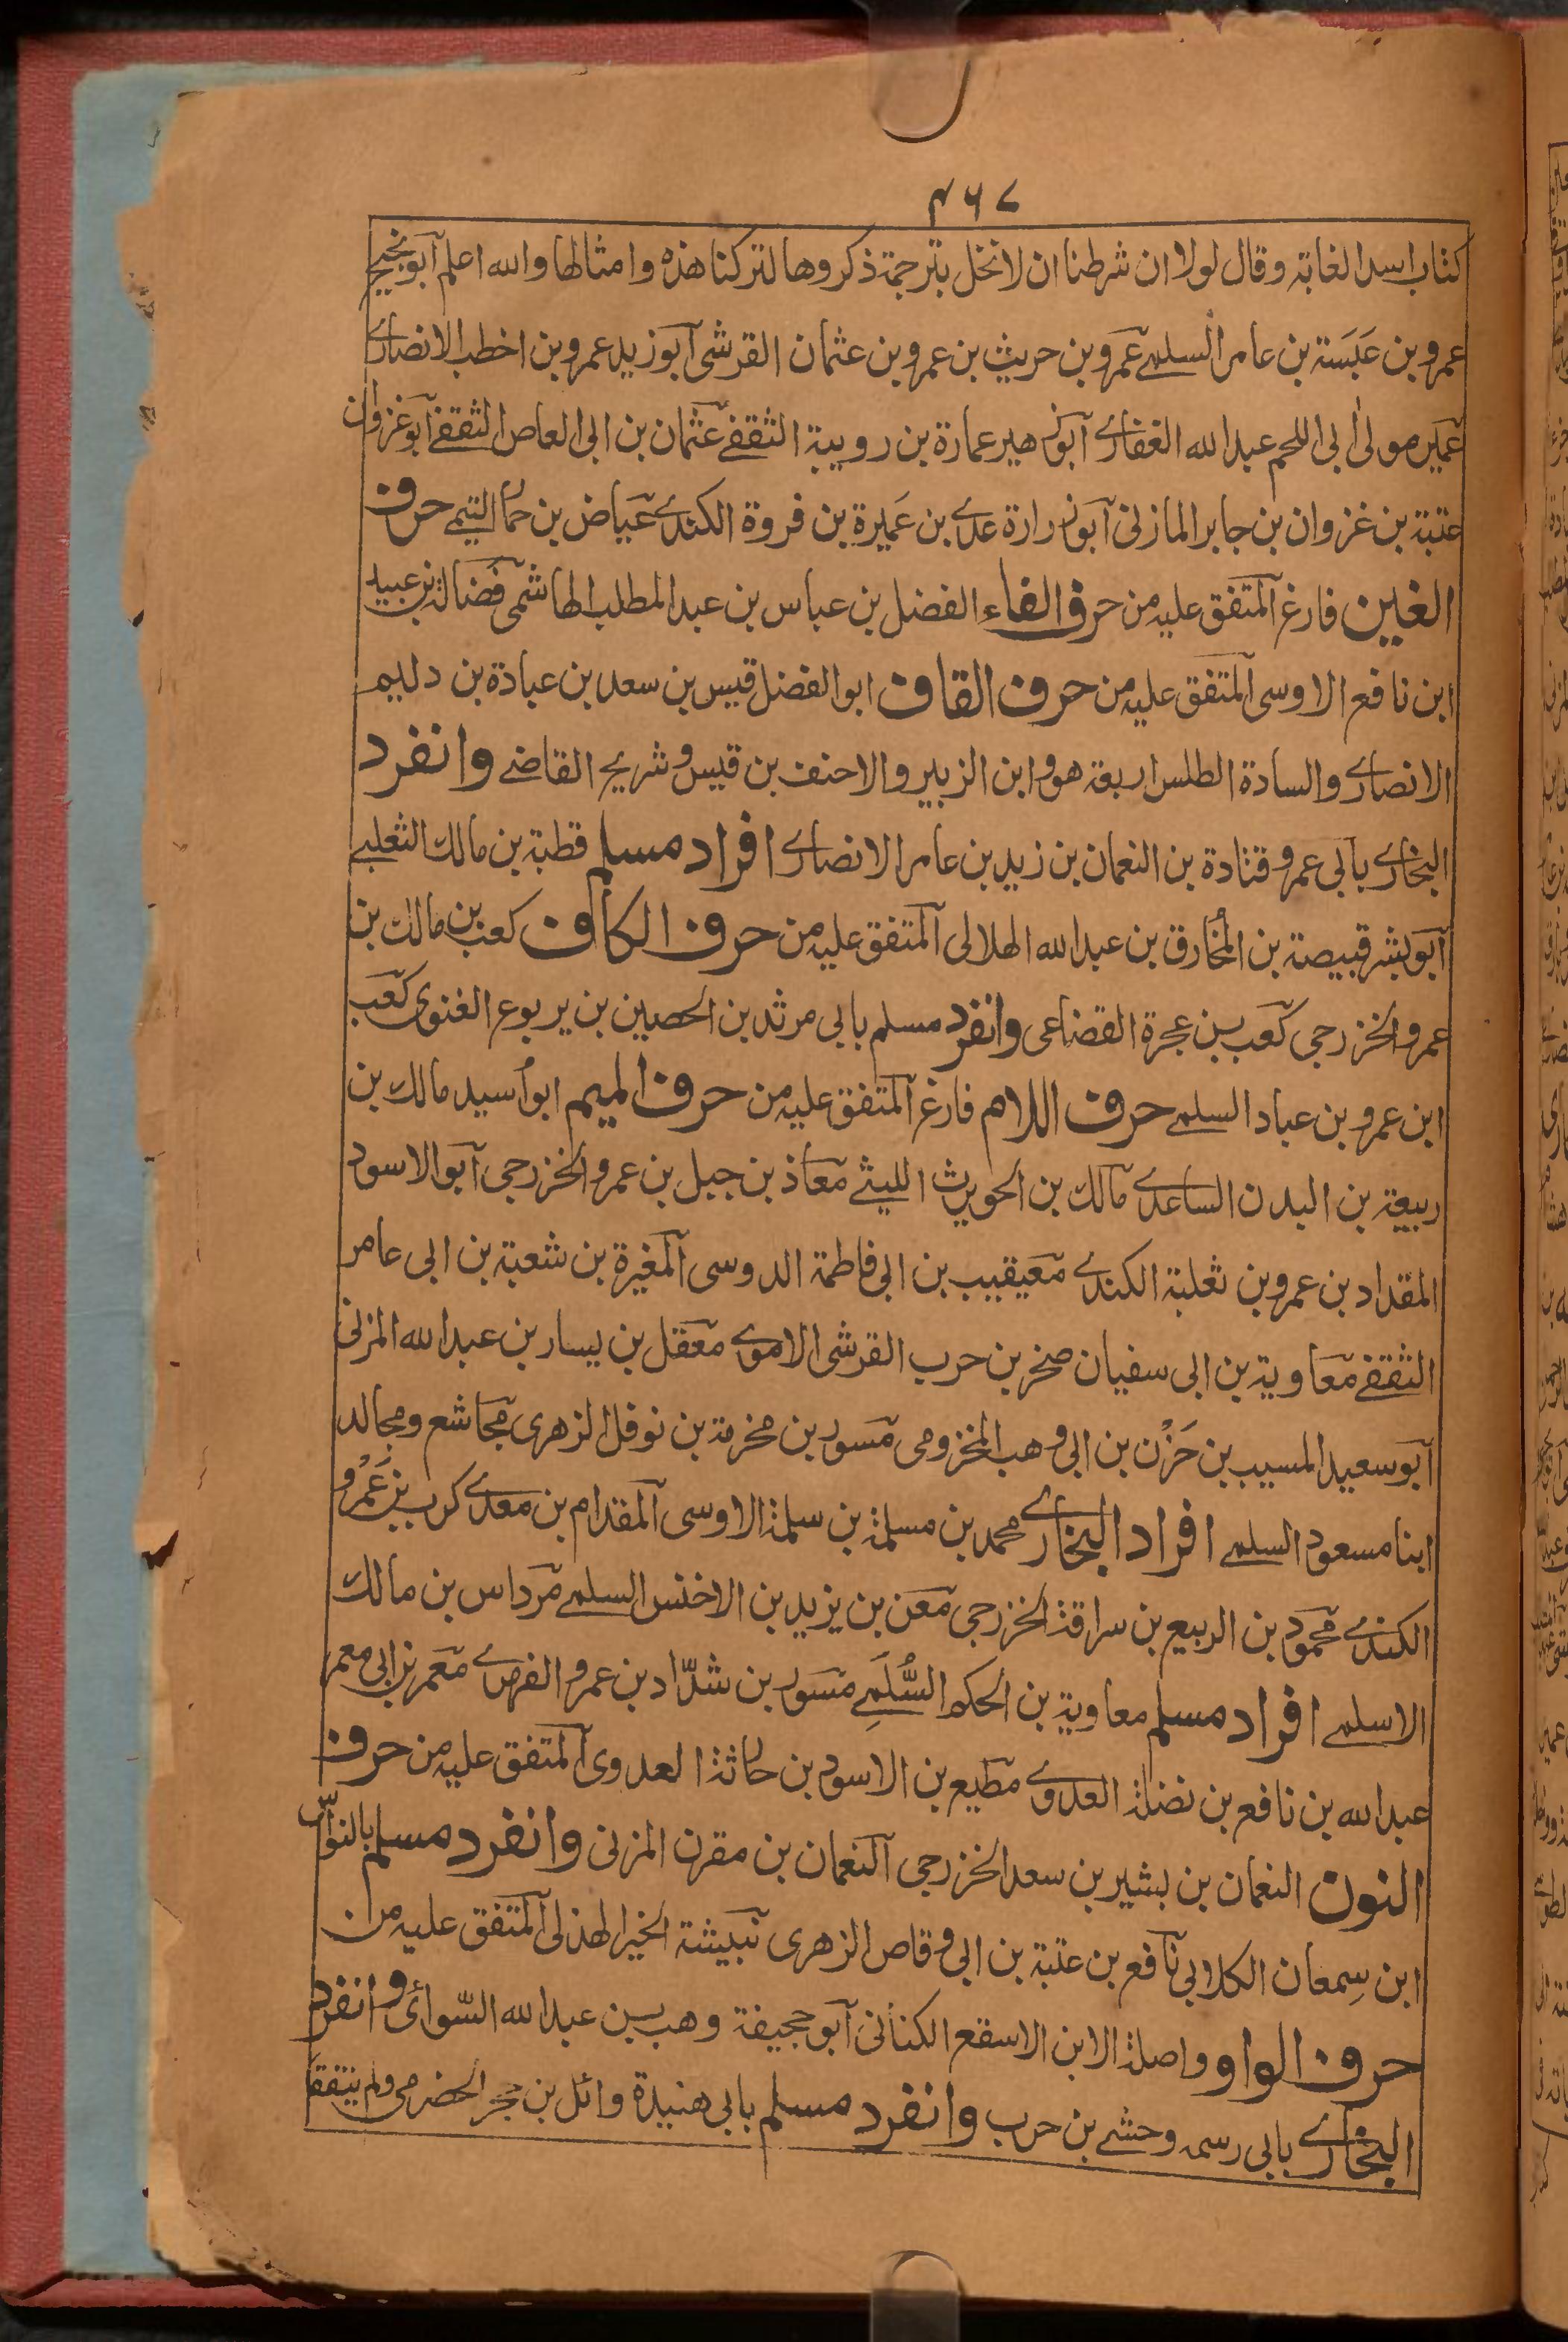 ٤٦٧
كتاب اسد الغابة وقال لولا ان شرطنا ان لا نخل بترجمة ذكروها لتركنا هذه وامثالها والله اعلم ابو نجيح
عمرو بن عَبَسَة بن عامر السلمے عمرو بن حريث بن عمرو بن عثمان القرشى ابو زيد عمرو بن اخطب الانصارے
عمير مولى ابى اللحم عبد الله الغفارے ابو زهير عمارة بن رويبة الثقفے عثمان بن ابى العاص الثقفے ابو غزوان
عتبة بن غزوان بن جابر المازنى ابو زرارة عدے بن عَمِيرة بن فروة الكندے عياض بن حمار التيمے حرف
الغين فارغ المتفق عليه من حرف الفاء الفضل بن عباس بن عبد المطلب الهاشمى فضالة بن عبيد
ابن نافع الاوسى المتفق عليه من حرف القاف ابو الفضل قيس بن سعد بن عبادة بن دليم
الانصارے والسادة الطلس اربعة هو وابن الزبير والاحنف بن قيس وشريح القاضے وانفرد
البخارے بابى عمرو قتادة بن النعمان بن زيد بن عامر الانصارے افراد مسلم قطبة بن مالك الثعلبے
ابو بشر قبيصة بن المُخارق بن عبد الله الهلالى المتفق عليه من حرف الكاف كعب بن مالك بن
عمرو الخزرجى كعب بن عجرة القضاعى وانفرد مسلم بابى مرثد بن الحصين بن يربوع الغنوى كعب
ابن عمرو بن عباد السلمے حرف اللام فارغ المتفق عليه من حرف الميم ابو اُسيد مالك بن
ربيعة بن البدن الساعدے مالك بن الحويرث الليثے معاذ بن جبل بن عمرو الخزرجى ابو الاسود
المقداد بن عمرو بن ثعلبة الكندے معيقيب بن ابى فاطمة الدوسى المغيرة بن شعبة بن ابى عامر
الثقفے معاوية بن ابى سفيان صخر بن حرب القرشى الاموے معقل بن يسار بن عبد الله المزنى
ابو سعيد المسيب بن حَزْن بن ابى وهب المخزومى مسور بن مخرمة بن نوفل الزهرى مجاشع ومجالد
ابنا مسعود السلمے افراد البخارے محمد بن مسلمة بن سلمة الاوسى المقدام بن معدے كرب بن عَمْرو
الكندے محمود بن الربيع بن سراقة الخزرجى معن بن يزيد بن الاخنس السلمے مرداس بن مالك
الاسلمے افراد مسلم معاوية بن الحكم السُّلَمِے مسور بن شدّاد بن عمرو الفهرے معمر بن ابى معمر
عبد الله بن نافع بن نضلة العدوے مطيع بن الاسود بن حارثة العدوى المتفق عليه من حرف
النون النعمان بن بشير بن سعد الخزرجى النعمان بن مقرن المزنى وانفرد مسلم بالنوّاس
ابن سِمعان الكلابى نافع بن عتبة بن ابى وقاص الزهرى نبيشة الخير الهذلى المتفق عليه من
حرف الواو واصلة الابن الاسقع الكنانى ابو جحيفة وهب بن عبد الله السّوائى وانفرد
البخارے بابى رسمه وحشے بن حرب وانفرد مسلم بابى هنيدة وائل بن حجر الحضرمى ولم يتفقا